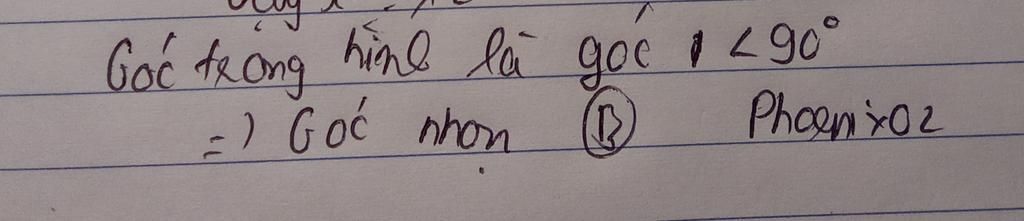 Góc trong hình là góc < 90°
=) Góc nhọn B PhoenixO2